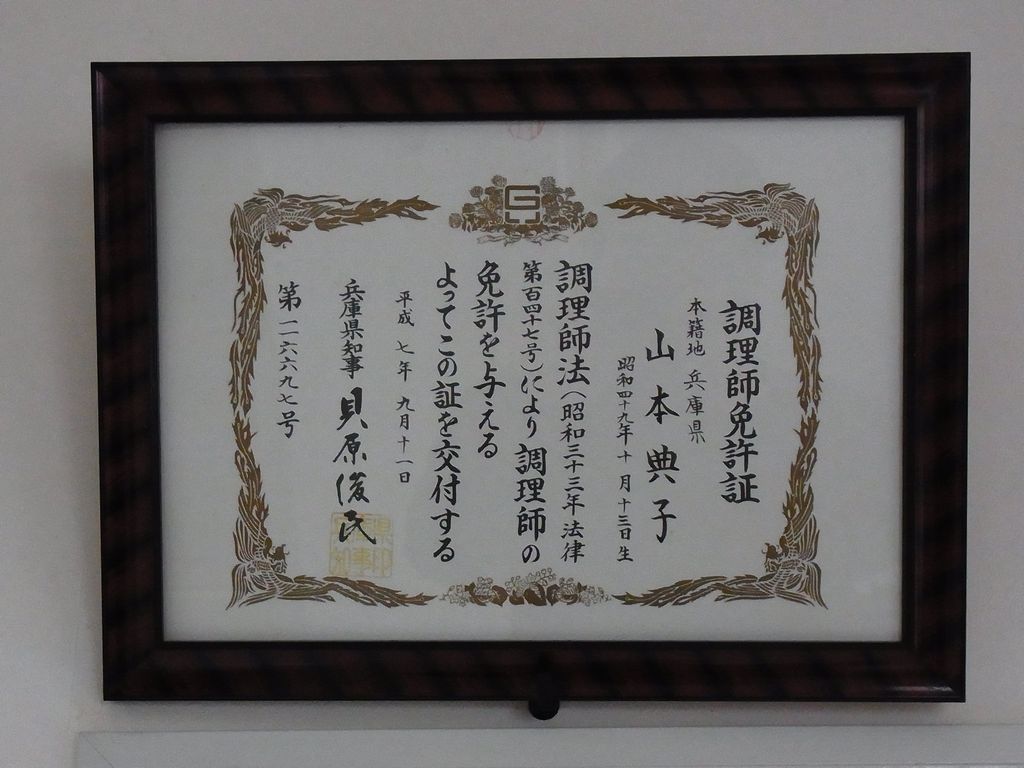 調理師免許証
本籍地 兵庫県
山本典子
昭和四十九年十月十三日生
調理師法（昭和三十三年法律
第百四十七号）により調理師の
免許を与える
よってこの証を交付する
平成 七年 九月十一日
兵庫県知事 貝原俊民
第一一六六九七号